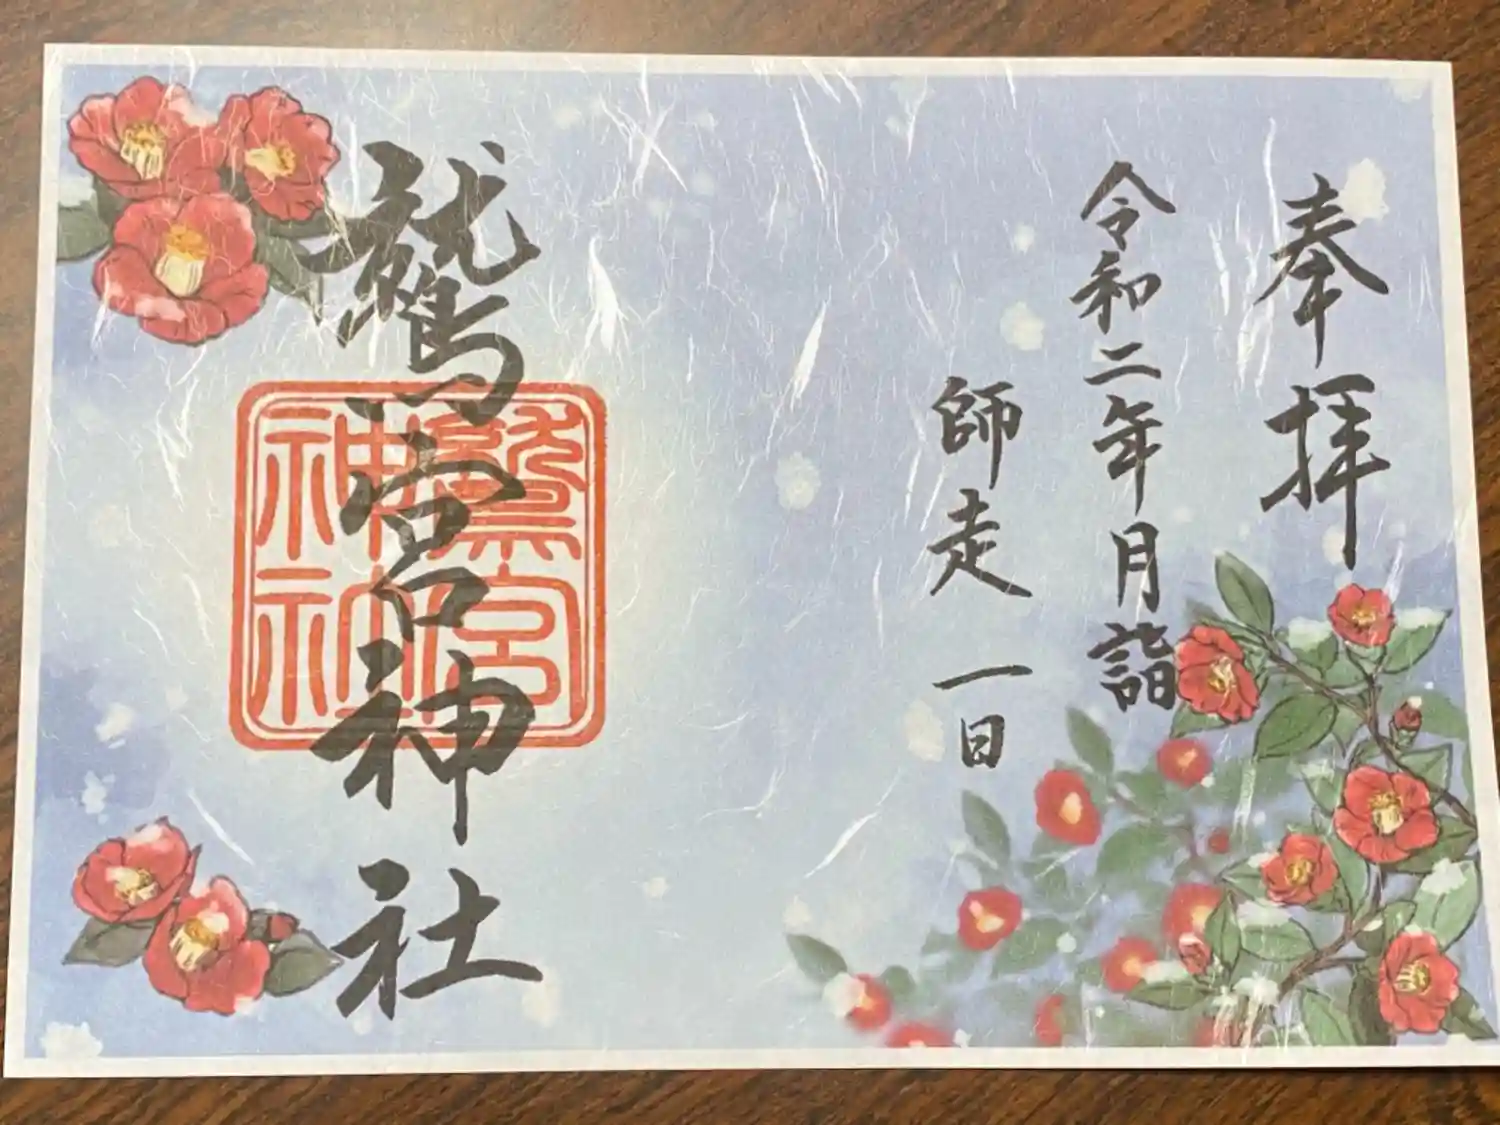 奉拝
令和二年月詣
師走 一日
鷲宮神社
鷲宮
神社